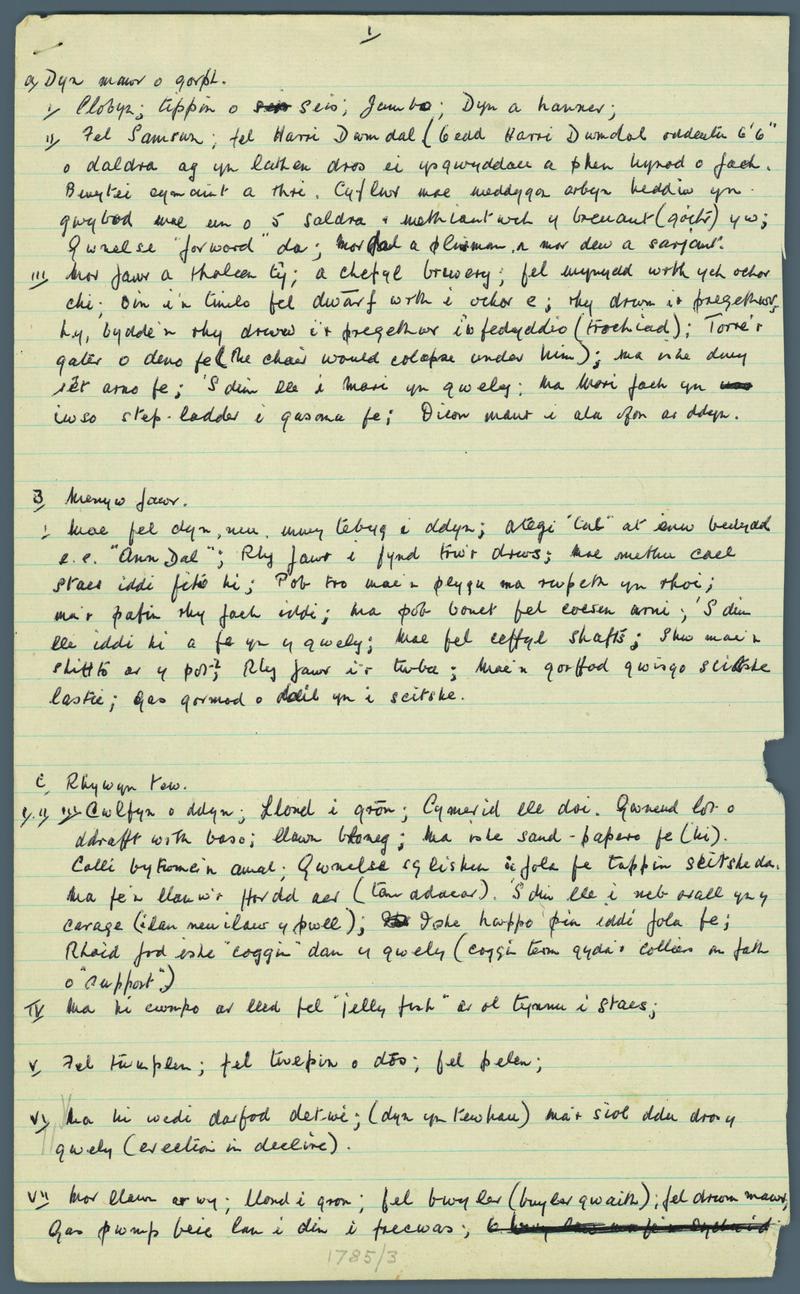 1
a, Dyn mawr o gorph.
i, Clobyn; tippin o seis; Jumbo; Dyn a hanner;
ii, Fel Samsun; fel Harri Dwmdal (bedd Harri Dwmdal oddeutu 6'6"
o daldra ag yn lathen dros ei ysgwyddau a phen hynod o fach.
Bwytei cymaint a thri. Cyflwr mae meddygon arbyn heddiw yn
gwybod mae un o 5 saldra + methiant wch y breuant (goitr) yw;
Gwnelse "forword" da; mor dal a plisman, a mor dew a sarjant.
iii, Mor fawr a tholcen tŷ; a chefyl brewery; fel mynydd wrth ych ochor
chi; Din i'n timlo fel dwarf wrth i ochor e; rhy drwm i'r pregethwr,
hy, bydde'n rhy drwm i'r pregethwr i'w fedyddio (trochiad); Torre'r
gater o dano fe (the chair would colapse under him); ma ishe dwy
sêt arno fe; 'S dim lle i Mari yn gwely; Ma Mari fach yn
iwso step-ladder i gasanu fe; Dicon maint i ala ofon ar ddyn.
B, Menyw fawr.
i, Mae fel dyn, neu, mwy tebyg i ddyn; ategi "tal" at enw bedydd
e.e. "Ann Dal"; Rhy fawr i fynd trw'r drws; Mae methu cael
staes iddi fitio hi; Pob tro mae'n plygu ma rwpeth yn rhoi;
ma'r pafin rhy fach iddi; ma pob bonet fel cocsen arni; 'S dim
lle iddi hi a fe yn y gwely; Mae fel ceffyl shafts; Shw mae'n
shifto ar y pot?; Rhy fawr i'r twba; Mae'n gorffod gwisgo scitshe
lastic; Gas gormod o ddail yn i scitshe.
C, Rhywyn tew.
i, ii, iii, Cwlfyn o ddyn; Llond i grôn; Cymerid lle doi. Gwneud lot o
ddrafft wrth baso; llawn bloneg; Ma ishe sand-papero fe (hi).
Colli bytwme'n amal; Gwnelse cylishen i fola fe tappin scitshe da.
Ma fe'n llanw'r ffordd aer (tan ddaear). 'S dim lle i neb arall yn y
carage (i lan neu ilawr y pwll); Ishe hwppo pin iddi fola fe;
Rhaid fod ishe "coggin" dan y gwely (coggin term gyda'r colliers am fath
o "support".)
IV, Ma hi cwmpo ar lled fel "jelly fish" ar ol tynnu i staes;
V, Fel twmplen; fel twlpin o dôs; fel pelen;
VI, Ma hi wedi darfod det-wi; (dyn yn tewhau) ma'r siol ddu dros y
gwely (erection in decline).
VII, Mor llawn ar wy; llond i gron; fel bwyler (bwyler gwaith); fel drwm mawr,
Gas pwmp beic lan i din i frecwas;
1785/3